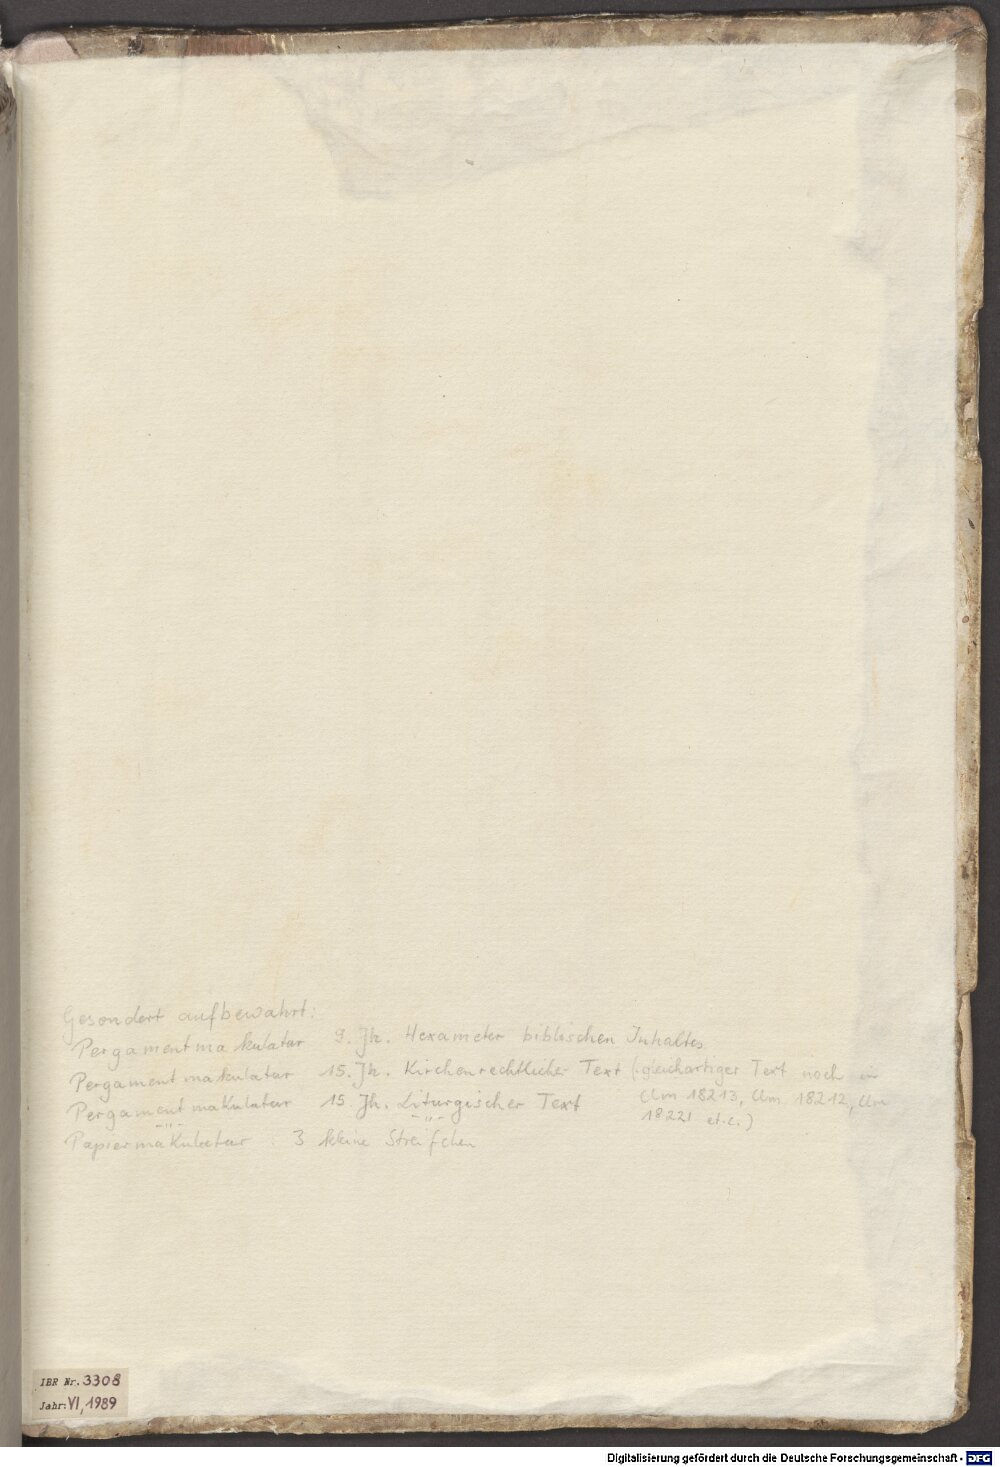 Gesondert aufbewahrt:
Pergamentmakulatur 9. Jh. Hexameter biblischen Inhaltes
Pergamentmakulatur 15. Jh. Kirchenrechtlicher Text (gleichartiger Text noch in
Clm 18213, Clm 18212, Clm
Pergamentmakulatur 15 Jh. Liturgischer Text
18221 etc.)
Papiermakulatur 3 kleine Streifchen
IBR Nr. 3308
Jahr: VI, 1989
Digitalisierung gefördert durch die Deutsche Forschungsgemeinschaft - DFG